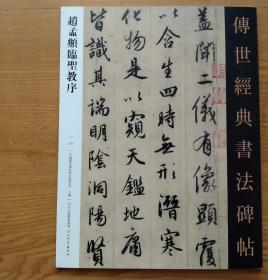 傳世經典書法碑帖
趙孟頫臨聖教序
蓋聞二儀有像顯覆
以含生四時無形潛寒
化物是以窺天鑑地庸
皆識其端明陰洞陽賢